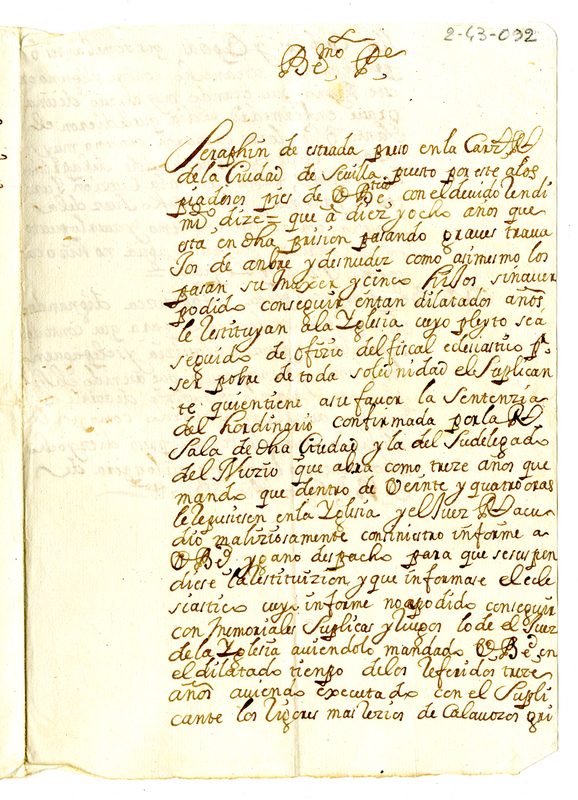 2-43-032
Bᵐᵒ Pᵉ
Seraphin de estrada preso en la Carᶻˡ Rˡ
de la Ciudad de Sevilla puesto por este a los
piadosos pies de V Bᵗᵘᵈ con el devido Rendi
mᵗᵒ dize = que â diez y ocho años que
esta en dha prision pasando graves trava
Jos de anbre y desnudez como asimesmo los
pasan su muxer y cinco hiJos sin auer
podido conseguir en tan dilatados años
le Restituyan a la Yglesia cuyo pleyto se â
seguido de ofizio del fiscal eclesiastico pʳ
ser pobre de toda solenidad el Suplican
te quien tiene a su favor la sentenzia
del hordinario confirmada por la Rˡ
Sala de dha Ciudad y la del Sudelegado
del Nuzio que abra como treze años que
mando que dentro de Veinte y quatro oras
le Repusiesen en la Yglesia y el Juez Rˡ acu
dio maliziosamente con sinistro informe a
V Bᵈ y gano despacho para que se suspen
diese la Restituizion y que informase el ecle
siastico cuyo informe no a podido conseguir
con Memoriales Suplicas y Ruegos lo de el Juez
de la Yglesia auiendolo mandado V Bᵈ en
el dilatado tienpo de los Referidos treze
años auiendo executado con el Supli
cante los Rigores mas Rezios de Calauozos gri